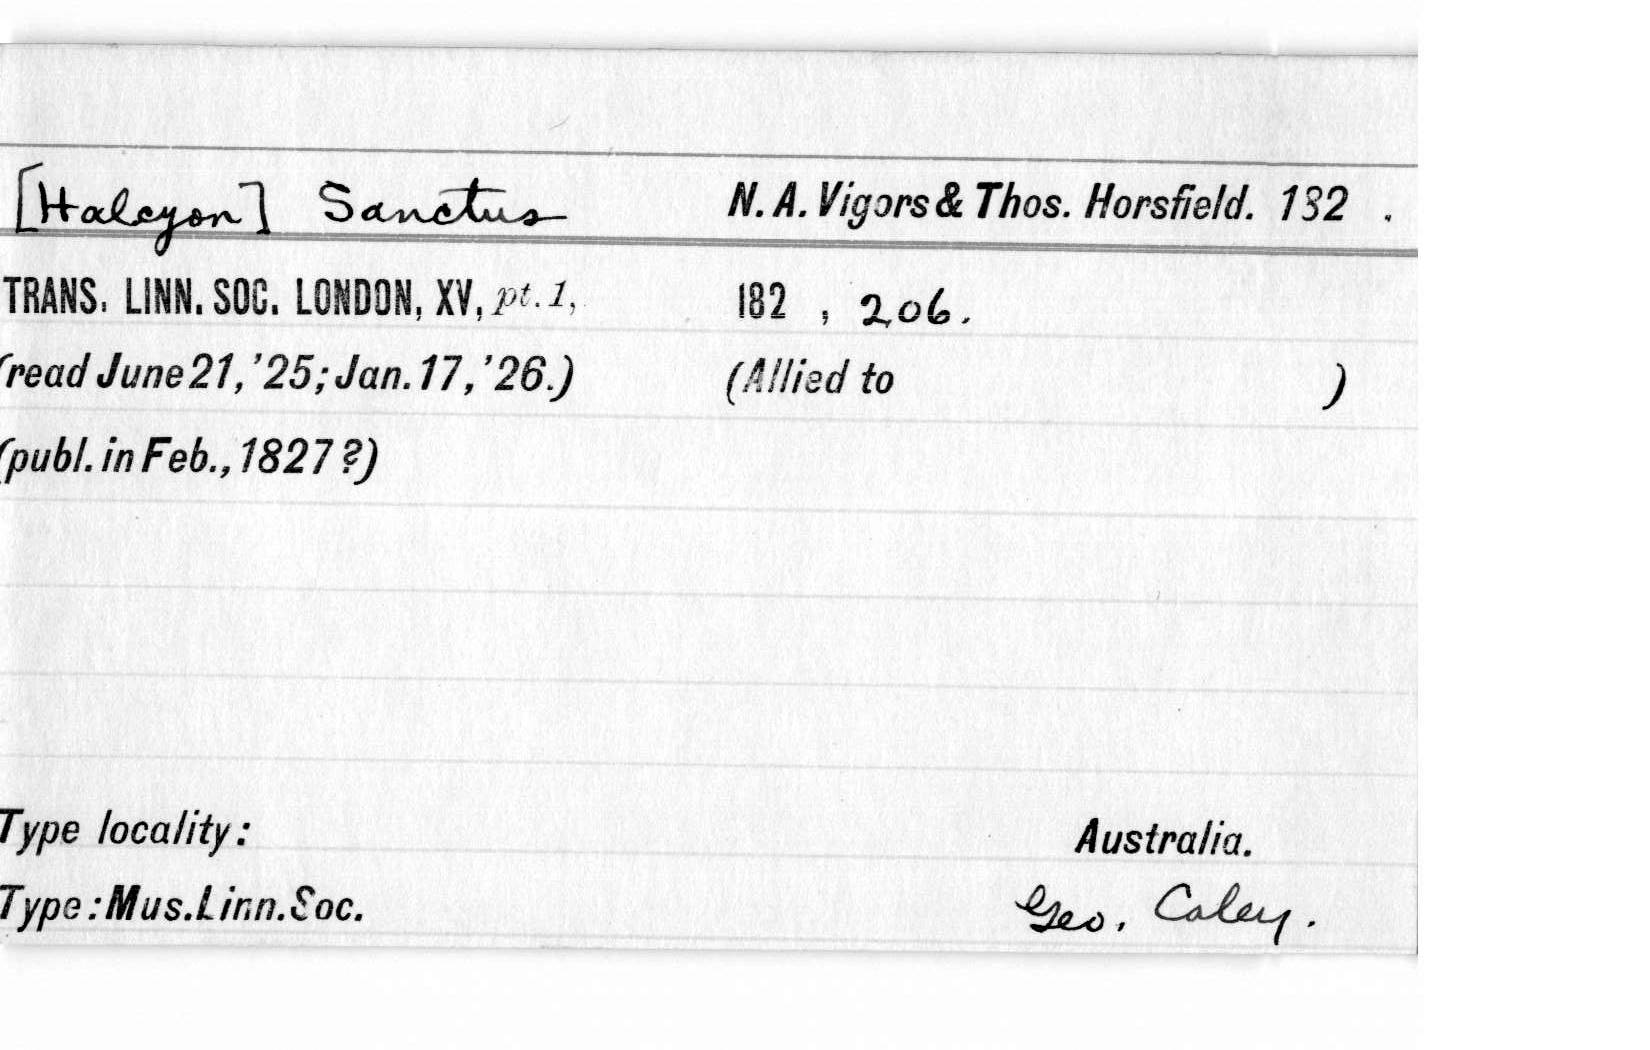 [Halcyon] Sanctus N. A. Vigors & Thos. Horsfield. 182 .
TRANS. LINN. SOC. LONDON, XV, pt. 1, 182 , 206.
(read June 21, '25; Jan. 17, '26.) (Allied to )
(publ. in Feb., 1827 ?)
Type locality: Australia.
Type: Mus. Linn. Soc. Geo. Caley.